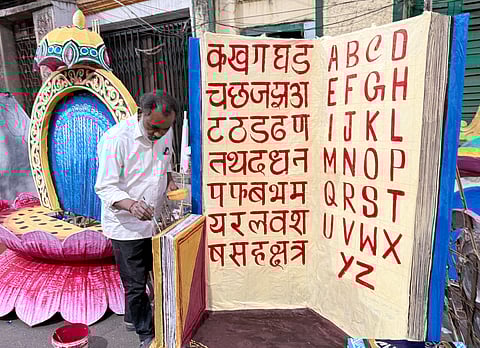 कखगघड
चछजझअ
टठडढण
तथदधन
पफबभम
यरलवश
षसहक्षत्र
ABCD
EFGH
IJKL
MNOP
QRST
UVWX
YZ